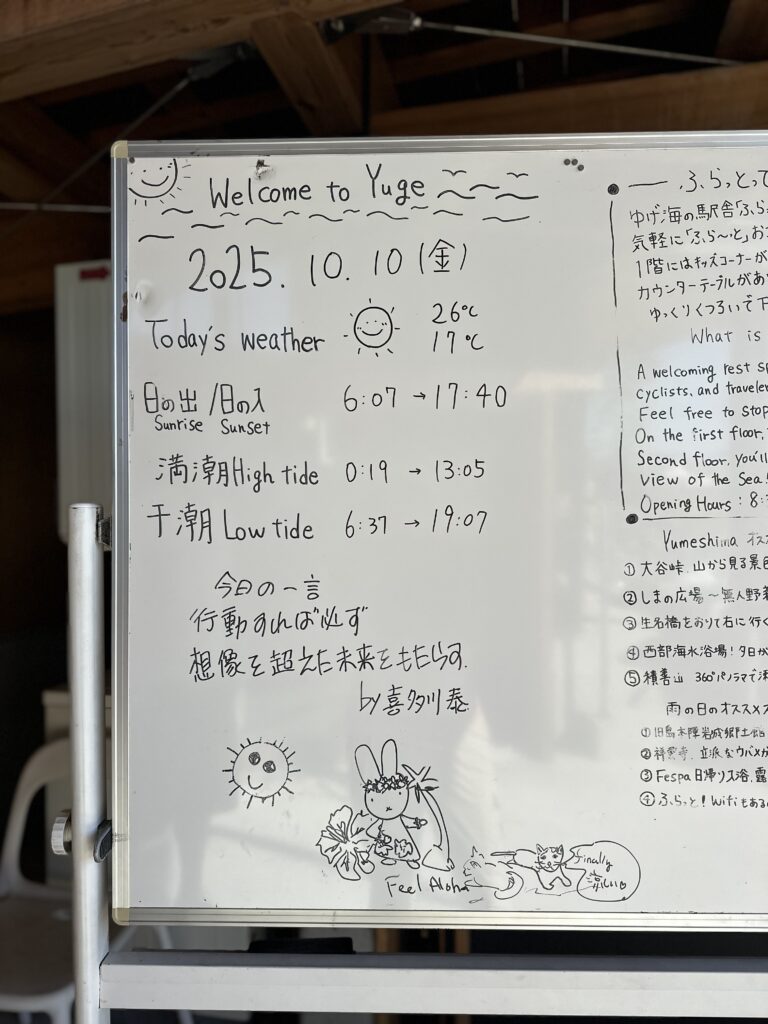 Welcome to Yuge
2025. 10. 10 (金)
Today's weather 26℃
17℃
日の出/日の入 6:07→17:40
Sunrise Sunset
満潮High tide 0:19→13:05
干潮Low tide 6:37→19:07
今日の一言
行動すれば必ず
想像を超えた未来をもたらす.
by喜多川泰
Feel Aloha
Finally
涼しい
ふらっとって
ゆげ海の駅舎「ふら
気軽に「ふら〜っと」お
1階にはキッズコーナーが
カウンターテーブルがあ
ゆっくりくつろいで下
What is
A welcoming rest sp
cyclists, and travele
Feel free to stop
On the first floor,
Second floor, you'll
view of the Sea!
Opening Hours : 8:
Yumeshima オス
① 大谷峠. 山から見る景色
② しまの広場〜無人野菜
③ 生名橋をおりて右に行く
④ 西部海水浴場! 夕日が
⑤ 積善山 360°パノラマで
雨の日のオススメス
① 旧島本陣岩城郷土館
② 祥雲寺. 立派なウバメが
③ Fespa 日帰りス浴, 露
④ ふらっと! Wifiもある